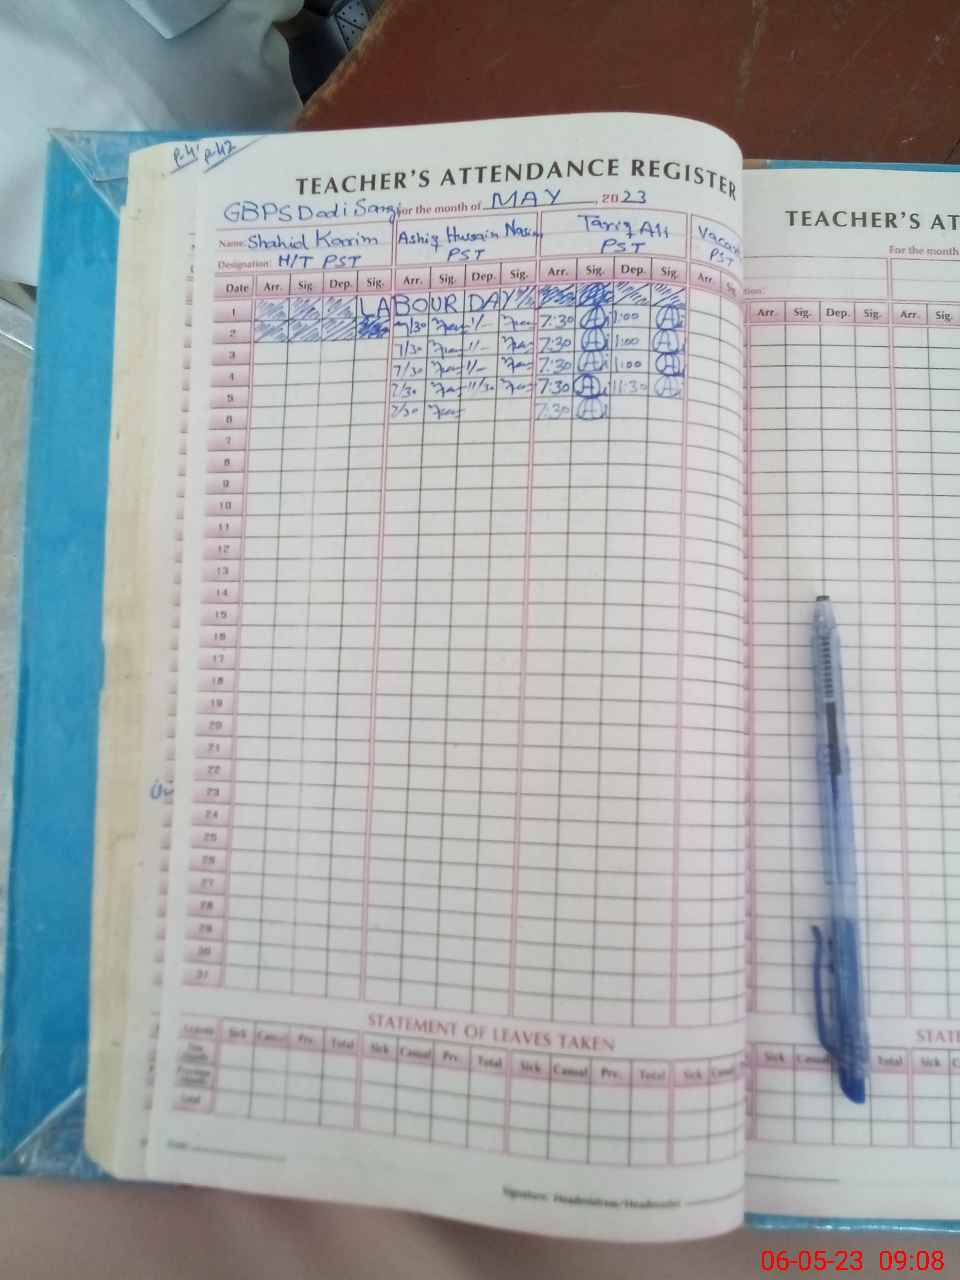 P-41 P-42
TEACHER'S ATTENDANCE REGISTER
GBPS Dodi for the month of MAY, 2023
Name: Shahid Karim Ashiq Husain Tariq Ali
Designation: H/T PST PST PST PST
Date Arr. Sig. Dep. Sig. Arr. Sig. Dep. Sig. Arr. Sig. Dep. Sig. Arr.
1 LABOUR DAY
2 7/30 1/- 7:30 A 1:00 A
3 7/30 1/- 7:30 A 1:00 A
4 7/30 1/- 7:30 A 1:00 A
5 7/30 11/30 7:30 A 11:30 A
6 7/30 7:30 A
7
8
9
10
11
12
13
14
15
16
17
18
19
20
21
22
23
24
25
26
27
28
29
30
31
STATEMENT OF LEAVES TAKEN
Leaves Sick Casual Prv. Total Sick Casual Prv. Total Sick Casual Prv. Total Sick
Total
Signature. Headmistress/Headmaster
TEACHER'S AT
For the month
Arr. Sig. Dep. Sig. Arr. Sig.
STATE
Sick Total Sick
06-05-23 09:08